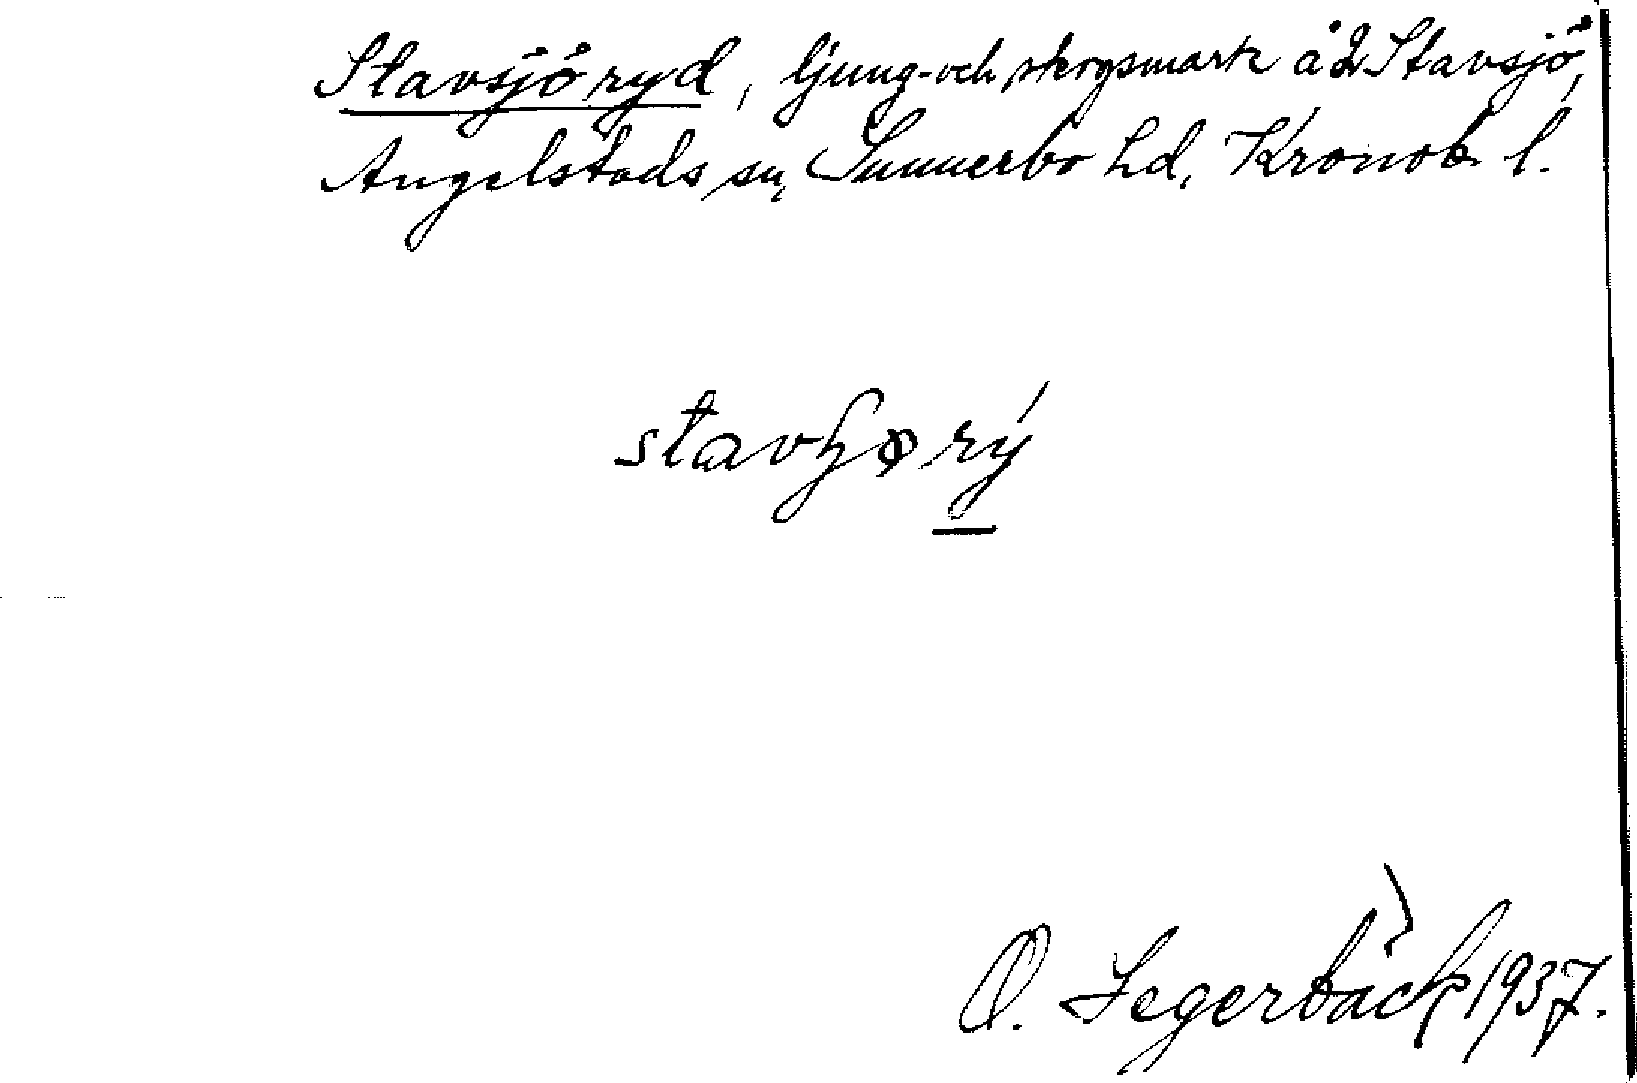 Stavsjöryd, ljung- och skogsmark å 2 Stavsjö,
Angelstads sn, Sunnerbo hd, Kronob. l.
stavɧørý
O. Segerbäck 1937.